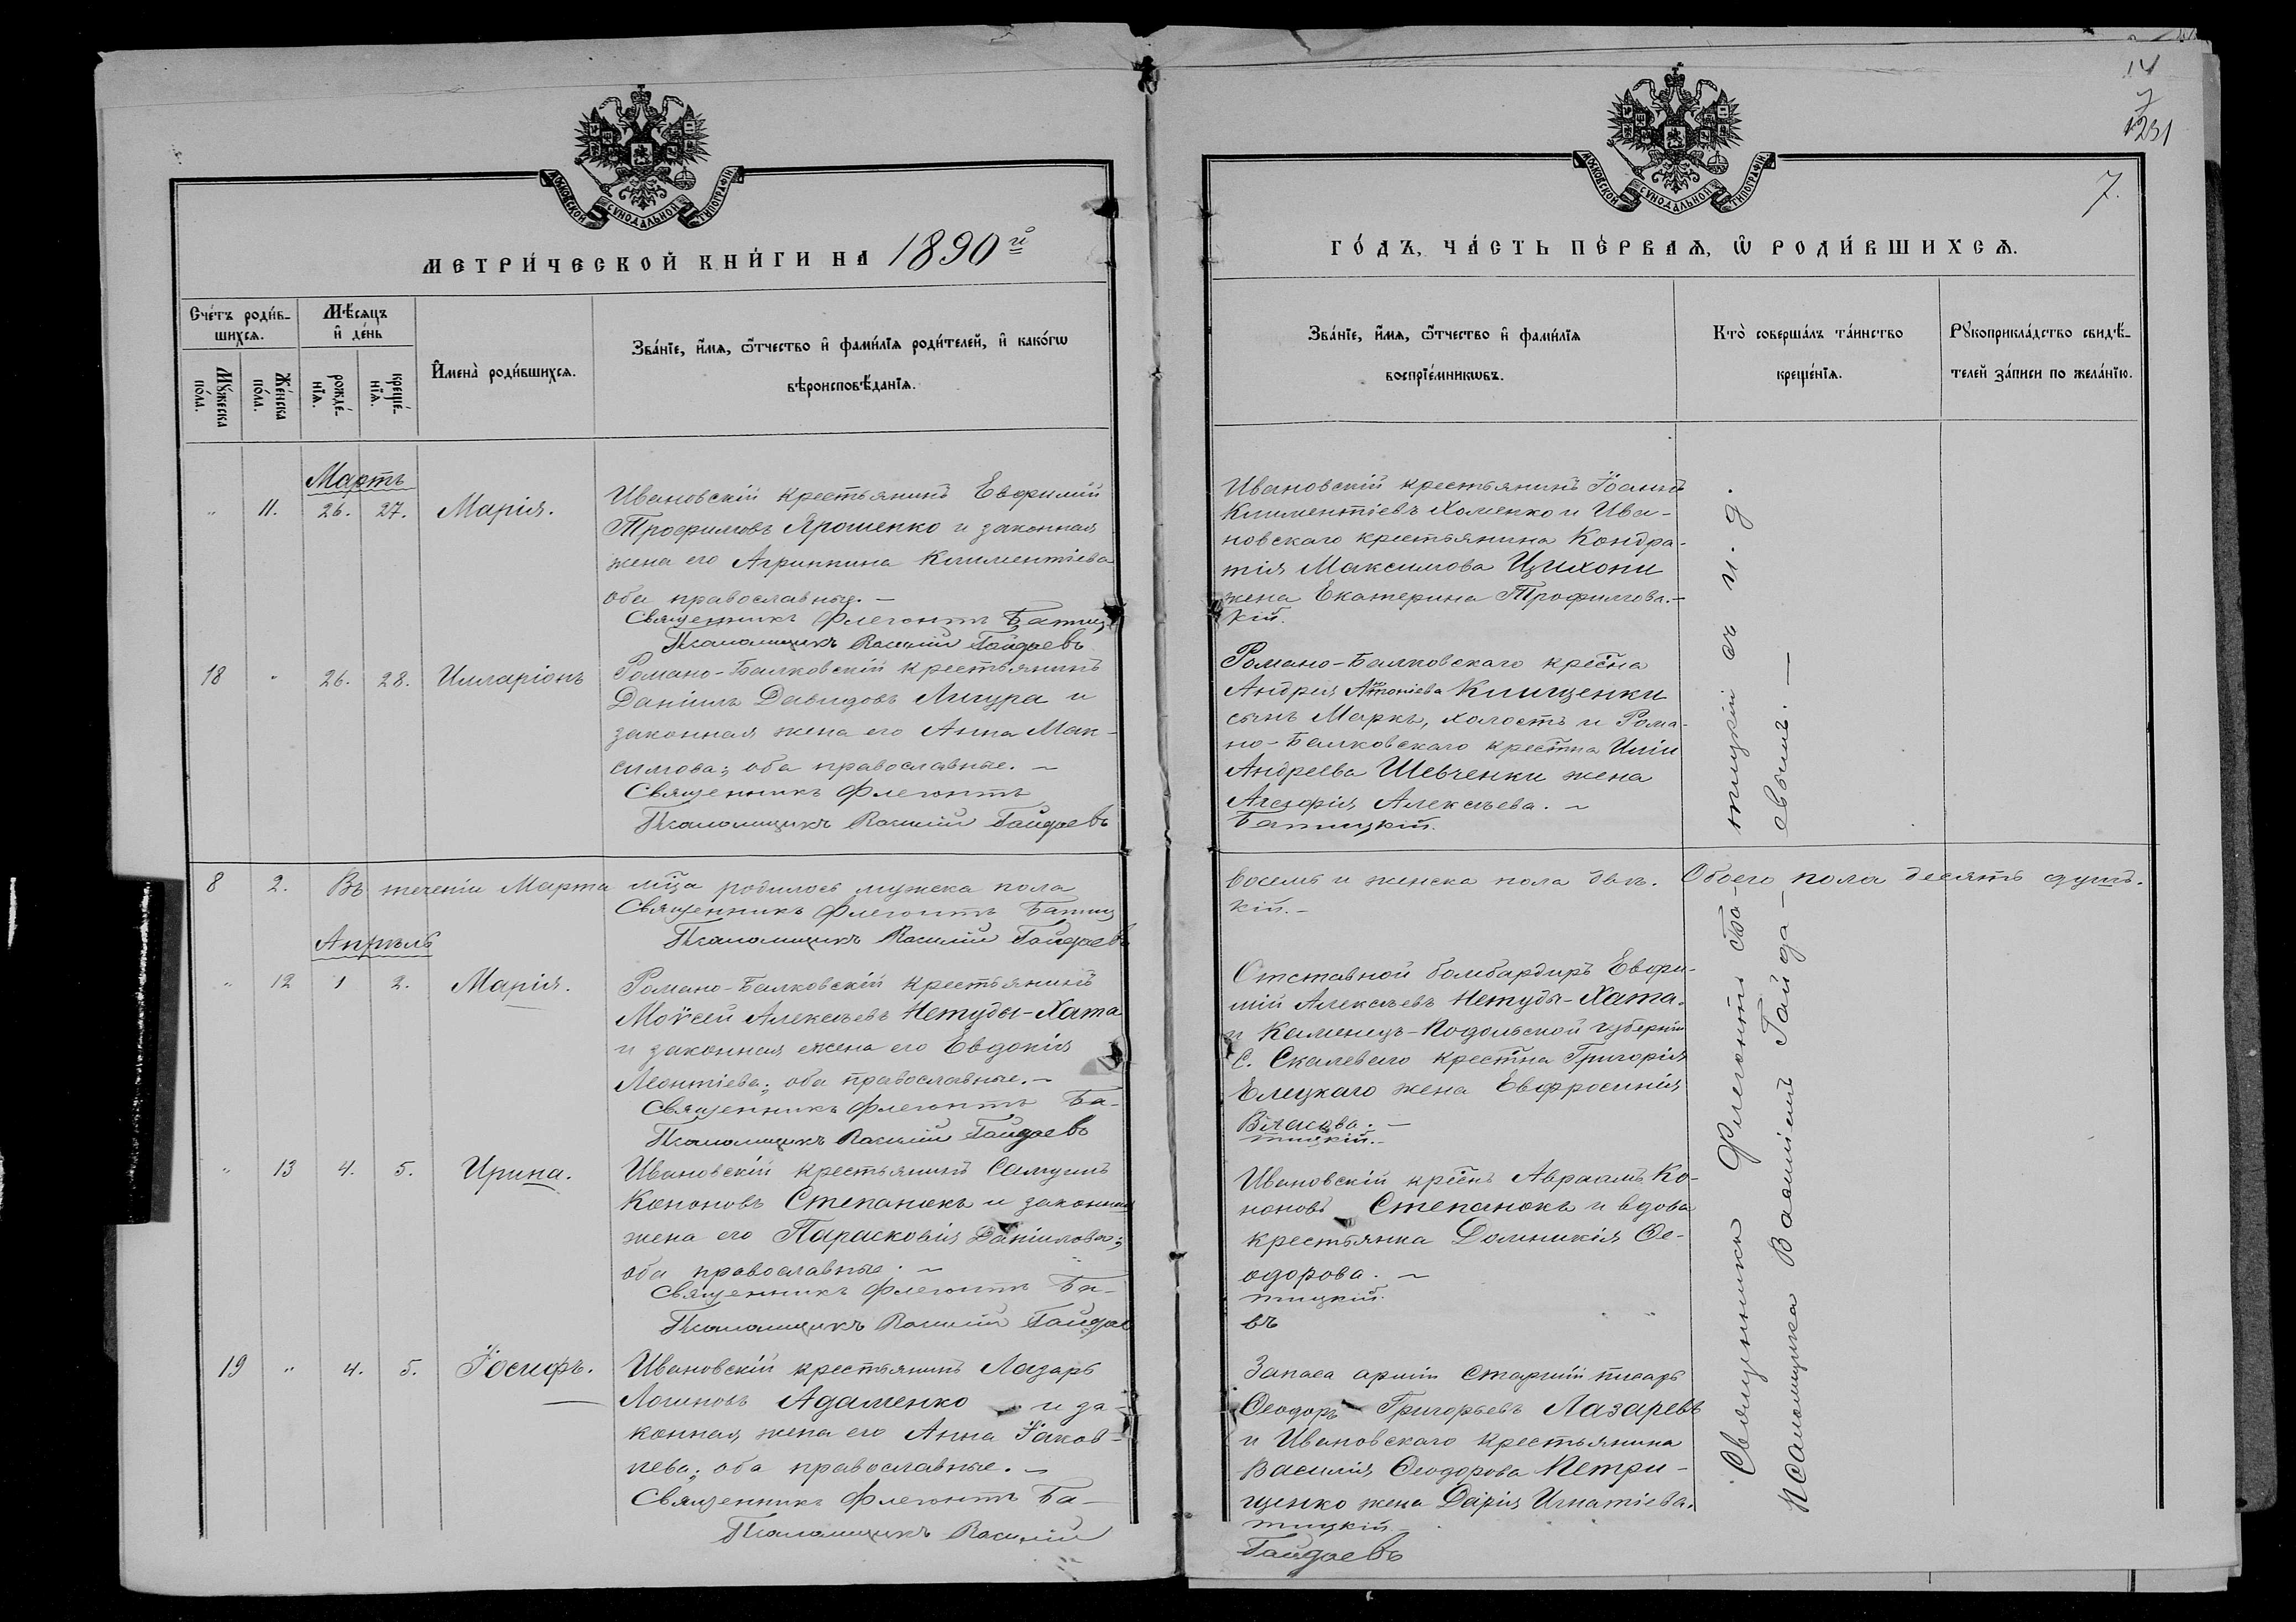 14
7
1231
7.
МОСКОВСКОЙ СѴНОДАЛЬНОЙ ТИПОГРАФІИ
МЕТРИ́ЧЕСКОЙ КНИ́ГИ НА 1890й
Сче́тъ роди́в-
шихсѧ.
Мѣ́сѧцъ
и҆ де́нь
Мꙋ́жеска
по́ла.
Же́нска
по́ла.
рожде́-
нїѧ.
креще́-
нїѧ.
И҆мена̀ роди́вшихсѧ.
Зва́нїе, и҆́мѧ, ѻ҆́тчество и҆ фами́лїѧ роди́телей, и҆ како́гѡ
вѣроисповѣ́данїѧ.
Мартъ
" 11. 26. 27. Марія.
Ивановскій крестьянинъ Евфимій
Трофимовъ Ярошенко и законная
жена его Агриппина Климентіева
оба православные. —
Священникъ Флегонтъ Батиц
Псаломщикъ Василій Гайдаевъ
18 " 26. 28. Илларіонъ
Романо-Балковскій крестьянинъ
Даніилъ Давидовъ Личура и
законная жена его Анна Мак-
симова; оба православные. —
Священникъ Флегонтъ
Псаломщикъ Василій Гайдаевъ
8 2. Въ теченіи Марта мѣца родилось мужеска пола
Священникъ Флегонтъ Батиц
Псаломщикъ Василій Гайдаевъ
Апрѣль
" 12 1 2. Марія.
Романо-Балковскій крестьянинъ
Моѵсей Алексѣевъ Нетуды-Хата
и законная жена его Евдокія
Леонтіева; оба православные. —
Священникъ Флегонтъ Ба-
Псаломщикъ Василій Гайдаевъ
" 13 4. 5. Ирина.
Ивановскій крестьянинъ Самуилъ
Кононовъ Степанюкъ и законная
жена его Парасковія Даніилова;
оба православные. —
Священникъ Флегонтъ Ба-
Псаломщикъ Василій Гайдае
19 " 4. 5. Іосифъ.
Ивановскій крестьянинъ Лазарь
Логиновъ Адаменко и за-
конная жена его Анна Іаков-
лева; оба православные. —
Священникъ Флегонтъ Ба-
Псаломщикъ Василій
МОСКОВСКОЙ СѴНОДАЛЬНОЙ ТИПОГРАФІИ
ГО́ДЪ, ЧА́СТЬ ПЕ́РВАѦ, Ѡ҆ РОДИ́ВШИХСѦ.
Зва́нїе, и҆́мѧ, ѻ҆́тчество и҆ фами́лїѧ
воспрїе́мникѡвъ.
Кто̀ соверша́лъ та́инство
креще́нїѧ.
Рꙋкоприкла́дство свидѣ́-
телей за́писи по жела́нїю.
Ивановскій крестьянинъ Іоаннъ
Климентіевъ Хоменко и Ива-
новскаго крестьянина Кондра-
тія Максимова Цихони
жена Екатерина Трофимова. —
кій.
Романо-Балковскаго крестна
Андрея Антоніева Клищенки
сынъ Маркъ, холостъ и Рома-
но-Балковскаго крестна Иліи
Андреева Шевченки жена
Агафія Алексѣева. —
Батицкій.
восемь и женска пола двѣ. Обоего пола десять душъ.
кій. —
Отставной бомбардиръ Евфи-
мій Алексѣевъ Нетуды-Хата.
и Каменецъ-Подольской губерніи
С. Скалеваго крестна Григорія
Елецкаго жена Евфросинія
Власова. —
тицкій. —
Ивановскій крестнъ Авраамъ Ко-
ноновъ Степанюкъ и вдова
крестьянка Домникія Ѳе-
одорова. —
тицкій.
въ
Запаса арміи старшій писарь
Ѳеодоръ Григорьевъ Лазаревъ
и Ивановскаго крестьянина
Василія Ѳеодорова Петри-
щенко жена Дарія Игнатіева.
тицкій
Гайдаевъ
Священникъ Флегонтъ Ба-тицкій съ и. д.
псаломщика Василіемъ Гайда-евымъ. —